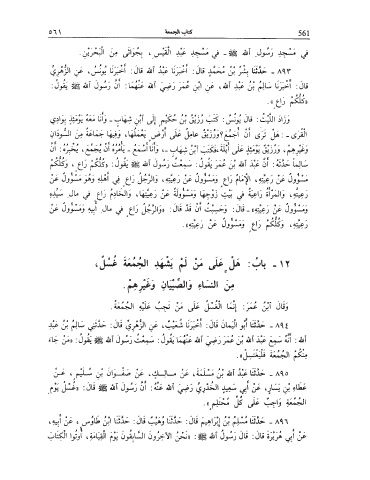 ٥٦١ كتاب الجمعة 561
في مَسْجِدِ رَسُولِ اللهِ ﷺ - في مَسْجِدِ عَبْدِ الْقَيْسِ، بِجُوَاثَى مِنَ الْبَحْرَيْنِ.
٨٩٣ - حَدَّثَنَا بِشْرُ بْنُ مُحَمَّدٍ قَالَ: أَخْبَرَنَا عَبْدُ اللهِ قَالَ: أَخْبَرَنَا يُونُسُ، عَنِ الزُّهْرِيِّ
قَالَ: أَخْبَرَنَا سَالِمُ بْنُ عَبْدِ اللهِ، عَنِ ابْنِ عُمَرَ رَضِيَ اللهُ عَنْهُمَا: أَنَّ رَسُولَ اللهِ ﷺ يَقُولُ:
«كُلُّكُمْ رَاعٍ».
وَزَادَ اللَّيْثُ: قَالَ يُونُسُ: كَتَبَ رُزَيْقُ بْنُ حُكَيْمٍ إِلَى ابْنِ شِهَابٍ - وَأَنَا مَعَهُ يَوْمَئِذٍ بِوَادِي
الْقُرَى -: هَلْ تَرَى أَنْ أُجَمِّعَ؟ وَرُزَيْقٌ عَامِلٌ عَلَى أَرْضٍ يَعْمَلُهَا، وَفِيهَا جَمَاعَةٌ مِنَ السُّودَانِ
وَغَيْرِهِمْ، وَرُزَيْقٌ يَوْمَئِذٍ عَلَى أَيْلَةَ، فَكَتَبَ ابْنُ شِهَابٍ -، وَأَنَا أَسْمَعُ - يَأْمُرُهُ أَنْ يُجَمِّعَ، يُخْبِرُهُ: أَنَّ
سَالِمًا حَدَّثَهُ: أَنَّ عَبْدَ اللهِ بْنَ عُمَرَ يَقُولُ: سَمِعْتُ رَسُولَ اللهِ ﷺ يَقُولُ: «كُلُّكُمْ رَاعٍ، وَكُلُّكُمْ
مَسْؤُولٌ عَنْ رَعِيَّتِهِ، الإِمَامُ رَاعٍ وَمَسْؤُولٌ عَنْ رَعِيَّتِهِ، وَالرَّجُلُ رَاعٍ فِي أَهْلِهِ وَهُوَ مَسْؤُولٌ عَنْ
رَعِيَّتِهِ، وَالْمَرْأَةُ رَاعِيَةٌ فِي بَيْتِ زَوْجِهَا وَمَسْؤُولَةٌ عَنْ رَعِيَّتِهَا، وَالْخَادِمُ رَاعٍ فِي مَالِ سَيِّدِهِ
وَمَسْؤُولٌ عَنْ رَعِيَّتِهِ - قَالَ: وَحَسِبْتُ أَنْ قَدْ قَالَ: «وَالرَّجُلُ رَاعٍ فِي مَالِ أَبِيهِ وَمَسْؤُولٌ عَنْ
رَعِيَّتِهِ، وَكُلُّكُمْ رَاعٍ وَمَسْؤُولٌ عَنْ رَعِيَّتِهِ».
١٢ - بابٌ: هَلْ عَلَى مَنْ لَمْ يَشْهَدِ الْجُمُعَةَ غُسْلٌ،
مِنَ النِّسَاءِ وَالصِّبْيَانِ وَغَيْرِهِمْ.
وَقَالَ ابْنُ عُمَرَ: إِنَّمَا الْغُسْلُ عَلَى مَنْ تَجِبُ عَلَيْهِ الْجُمُعَةُ.
٨٩٤ - حَدَّثَنَا أَبُو الْيَمَانِ قَالَ: أَخْبَرَنَا شُعَيْبٌ، عَنِ الزُّهْرِيِّ قَالَ: حَدَّثَنِي سَالِمُ بْنُ عَبْدِ
اللهِ: أَنَّهُ سَمِعَ عَبْدَ اللهِ بْنَ عُمَرَ رَضِيَ اللهُ عَنْهُمَا يَقُولُ: سَمِعْتُ رَسُولَ اللهِ ﷺ يَقُولُ: «مَنْ جَاءَ
مِنْكُمُ الْجُمُعَةَ فَلْيَغْتَسِلْ».
٨٩٥ - حَدَّثَنَا عَبْدُ اللهِ بْنُ مَسْلَمَةَ، عَنْ مَالِكٍ، عَنْ صَفْوَانَ بْنِ سُلَيْمٍ، عَنْ
عَطَاءِ بْنِ يَسَارٍ، عَنْ أَبِي سَعِيدٍ الْخُدْرِيِّ رَضِيَ اللهُ عَنْهُ: أَنَّ رَسُولَ اللهِ ﷺ قَالَ: «غُسْلُ يَوْمِ
الْجُمُعَةِ وَاجِبٌ عَلَى كُلِّ مُحْتَلِمٍ».
٨٩٦ - حَدَّثَنَا مُسْلِمُ بْنُ إِبْرَاهِيمَ قَالَ: حَدَّثَنَا وُهَيْبٌ قَالَ: حَدَّثَنَا ابْنُ طَاوُسٍ، عَنْ أَبِيهِ،
عَنْ أَبِي هُرَيْرَةَ قَالَ: قَالَ رَسُولُ اللهِ ﷺ: «نَحْنُ الآخِرُونَ السَّابِقُونَ يَوْمَ الْقِيَامَةِ، أُوتُوا الْكِتَابَ